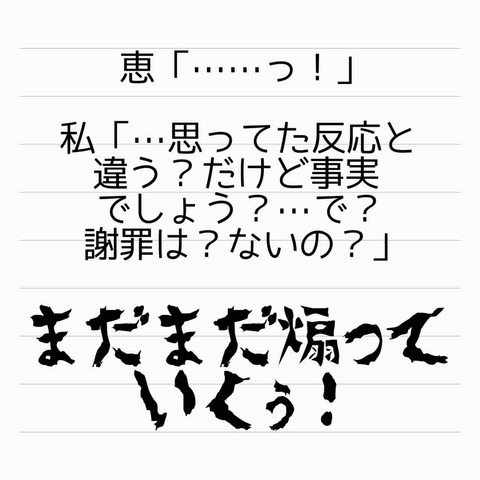 恵「……っ！」
私「…思ってた反応と
違う？だけど事実
でしょう？…で？
謝罪は？ないの？」
まだまだ煽って
いくぅ！